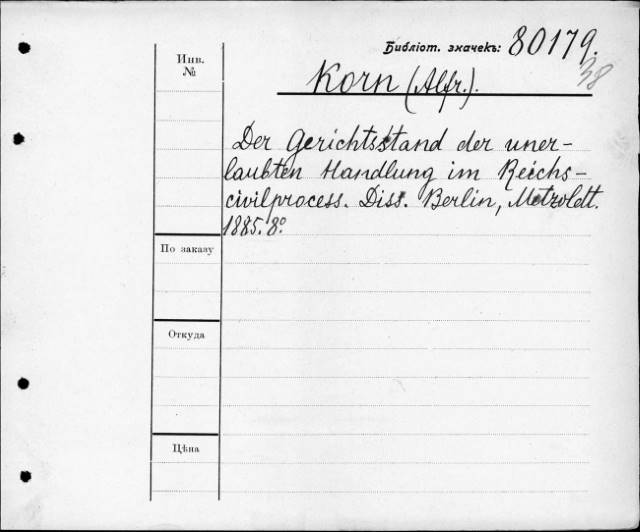 Библіот. значекъ: 80179.
38
Инв.
№
Korn (Alfr.).
Der Gerichtsstand der uner-
laubten Handlung im Reichs-
civilprocess. Diss. Berlin, Metzoldt.
1885. 8º.
По заказу
Откуда
Цѣна